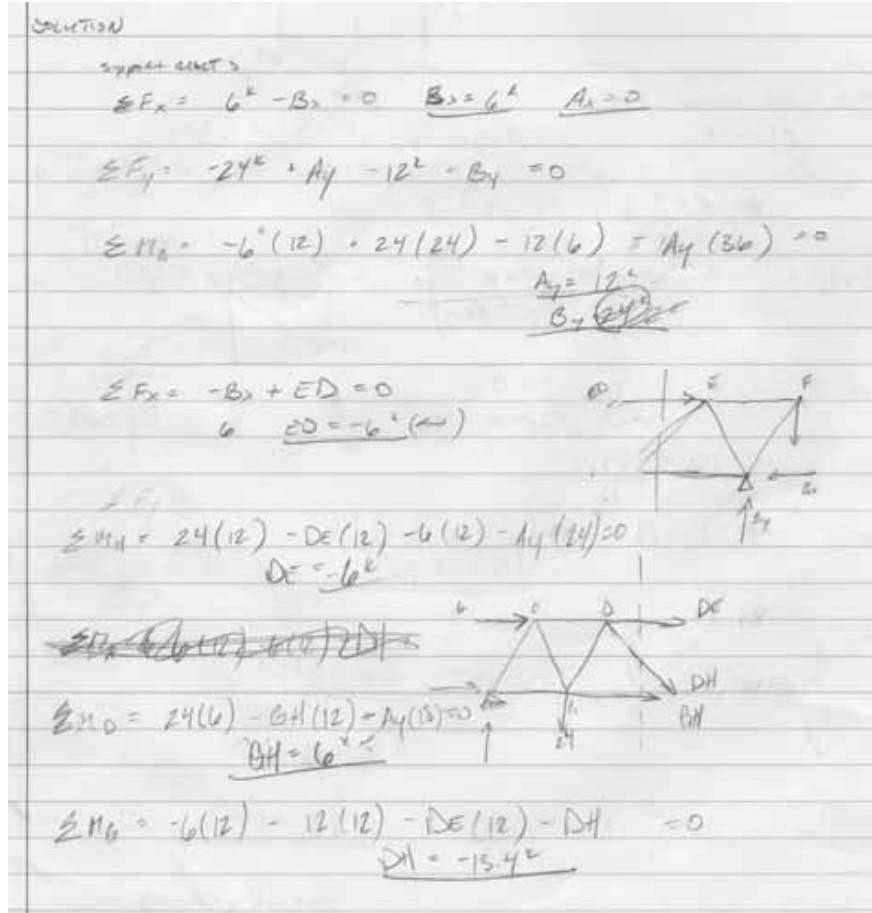 SOLUTION
support react s
ΣFx = 6k - Bx = 0 Bx = 6k Ax = 0
ΣFy = -24k + Ay - 12k - By = 0
ΣMB = -6k(12) + 24(24) - 12(6) - Ay(36) = 0
Ay = 12k
By 24k
ΣFx = -Bx + ED = 0
6 ED = -6k
E F
Bx
By
ΣFy
ΣMH = 24(12) - DE(12) - 6(12) - Ay(24) = 0
DE = -6k
6 C D DE
DH
GH
24
ΣMD = 24(6) - GH(12) - Ay(18) = 0
GH = 6k
ΣMG = -6(12) - 12(12) - DE(12) - DH = 0
DH = -13.4k